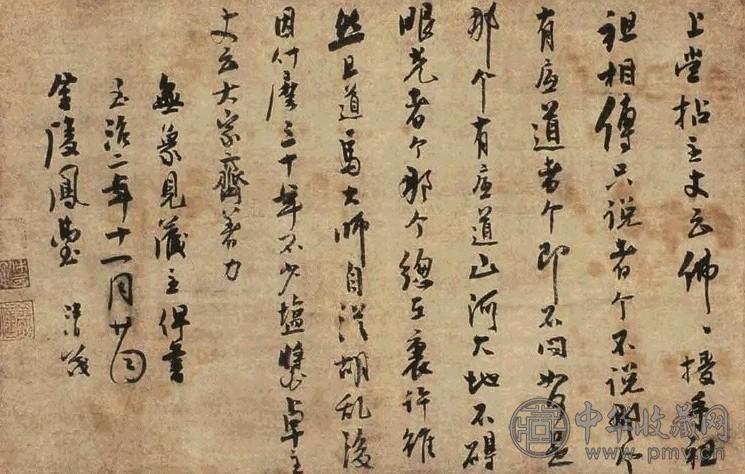 上堂拈主丈云佛〻授手祖
祖相傳只说者个不说那个
有底道者个即不問如何是
那个有底道山河大地不碍
眼光者个那个總在裏許雖
然且道馬大師自從胡乱後
因什麼三十年不少塩醬卓主
丈云大家齊著力
無象見藏主俾書
至治二年十一月廿日
金陵鳳臺 清茂
中华收藏网
www.pmv.cn